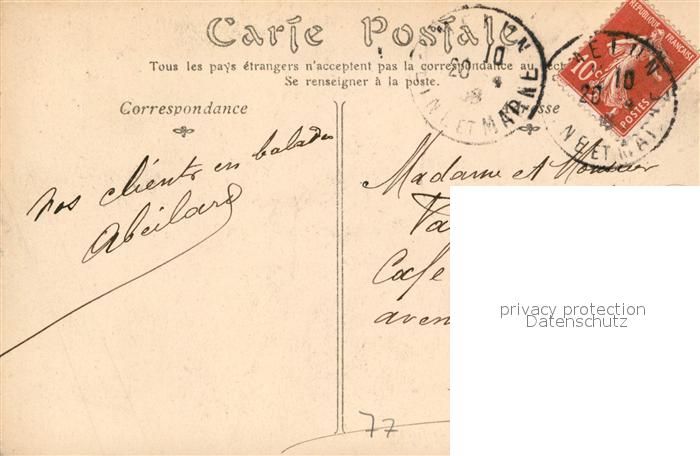 Carte Postale
Tous les pays étrangers n'acceptent pas la correspondance au recto
Se renseigner à la poste.
Correspondance
Nos clients en balades
Abeilard
Madame et Monsieur
Va
Café
aven
77
RÉPUBLIQUE FRANÇAISE
10 c
POSTES
MELUN
20 10
NE ET MARNE
MELUN
20 10
NE ET MA
privacy protection
Datenschutz